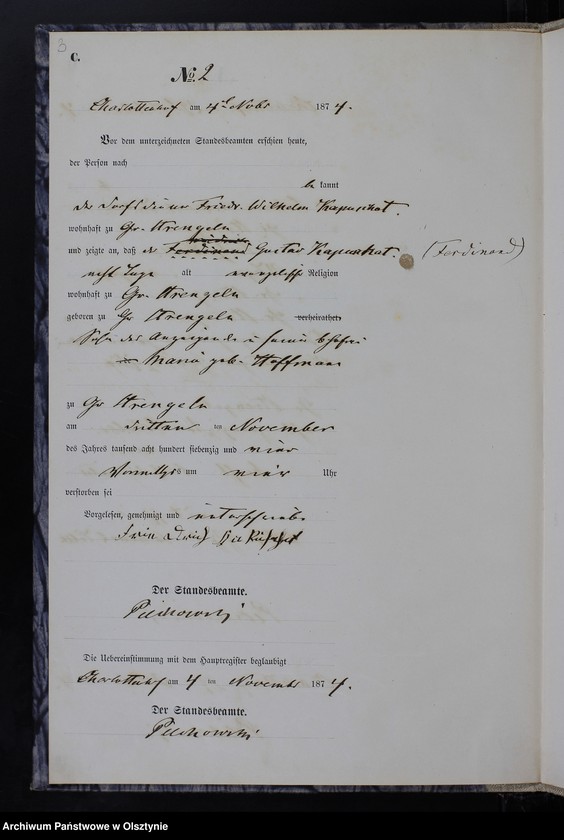 3
C.
No. 2
Charlottenhof am 4t Nobr 1874.
Vor dem unterzeichneten Standesbeamten erschien heute,
der Person nach
be kannt
der Friedr. Wilhelm
wohnhaft zu Gr. Krengeln
und zeigte an, daß der Ferdinand Gustav (Ferdinand)
acht Tage alt evangelischer Religion
wohnhaft zu Gr. Krengeln
geboren zu Gr Krengeln verheirathet
Sohn des Anzeigenden u seiner Ehefrau
Maria geb. Hoffmann
zu Gr Krengeln
am dritten ten November
des Jahres tausend acht hundert siebenzig und vier
Vormittags um vier Uhr
verstorben sei
Vorgelesen, genehmigt und unterschrieben
Friedrich
Der Standesbeamte.
Die Uebereinstimmung mit dem Hauptregister beglaubigt
Charlottenhof am 4 ten November 1874.
Der Standesbeamte.
Archiwum Państwowe w Olsztynie